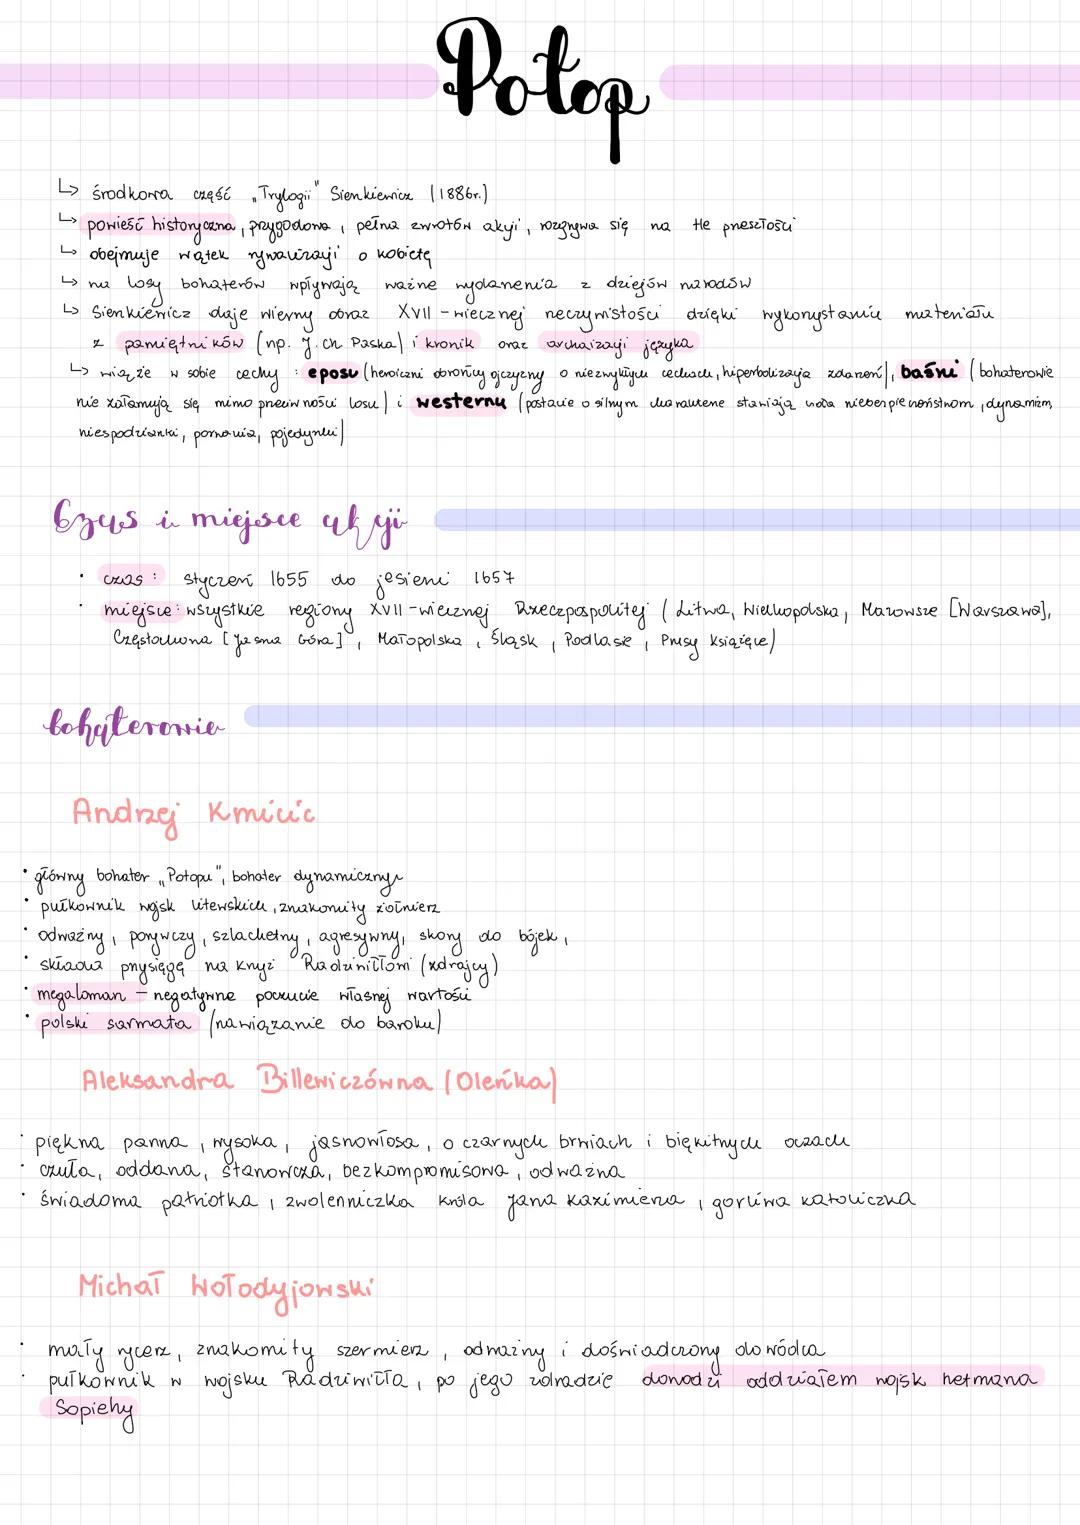 Potop
↳ środkowa część „Trylogii" Sienkiewicz (1886r.)
↳ powieść historyczna, przygodowa, pełna zwrotów akcji, rozgrywa się na tle przeszłości
↳ obejmuje wątek rywalizacji o kobietę
↳ na losy bohaterów wpływają ważne wydarzenia z dziejów narodów
↳ Sienkiewicz daje wierny obraz XVII-wiecznej rzeczywistości dzięki wykorzystaniu materiału
z pamiętników (np. J. Ch. Paska) i kronik oraz archaizacji języka
↳ wiąże w sobie cechy: eposu (heroiczni obrońcy ojczyzny o niezwykłych cechach, hiperbolizacja zdarzeń), baśni (bohaterowie
nie załamują się mimo przeciwności losu) i westernu (postacie o silnym charakterze stawiają czoła niebezpieczeństwom, dynamizm,
niespodzianki, porwania, pojedynki)
Czas i miejsce akcji
• czas: styczeń 1655 do jesieni 1657
• miejsce: wszystkie regiony XVII-wiecznej Rzeczpospolitej (Litwa, Wielkopolska, Mazowsze [Warszawa],
Częstochowa [Jasna Góra], Małopolska, Śląsk, Podlasie, Prusy Książęce)
bohaterowie
Andrzej Kmicic
• główny bohater „Potopu", bohater dynamiczny
• pułkownik wojsk litewskich, znakomity żołnierz
• odważny, porywczy, szlachetny, agresywny, skory do bójek,
• składa przysięgę na krzyż Radziwiłłowi (zdrajcy)
• megaloman – negatywne poczucie własnej wartości
• polski sarmata (nawiązanie do baroku)
Aleksandra Billewiczówna (Oleńka)
• piękna panna, wysoka, jasnowłosa, o czarnych brwiach i błękitnych oczach
• czuła, oddana, stanowcza, bezkompromisowa, odważna
• świadoma patriotka, zwolenniczka króla Jana Kazimierza, gorliwa katoliczka
Michał Wołodyjowski
• mały rycerz, znakomity szermierz, odważny i doświadczony dowódca
• pułkownik w wojsku Radziwiłła, po jego zdradzie dowodzi oddziałem wojsk hetmana
Sapiehy